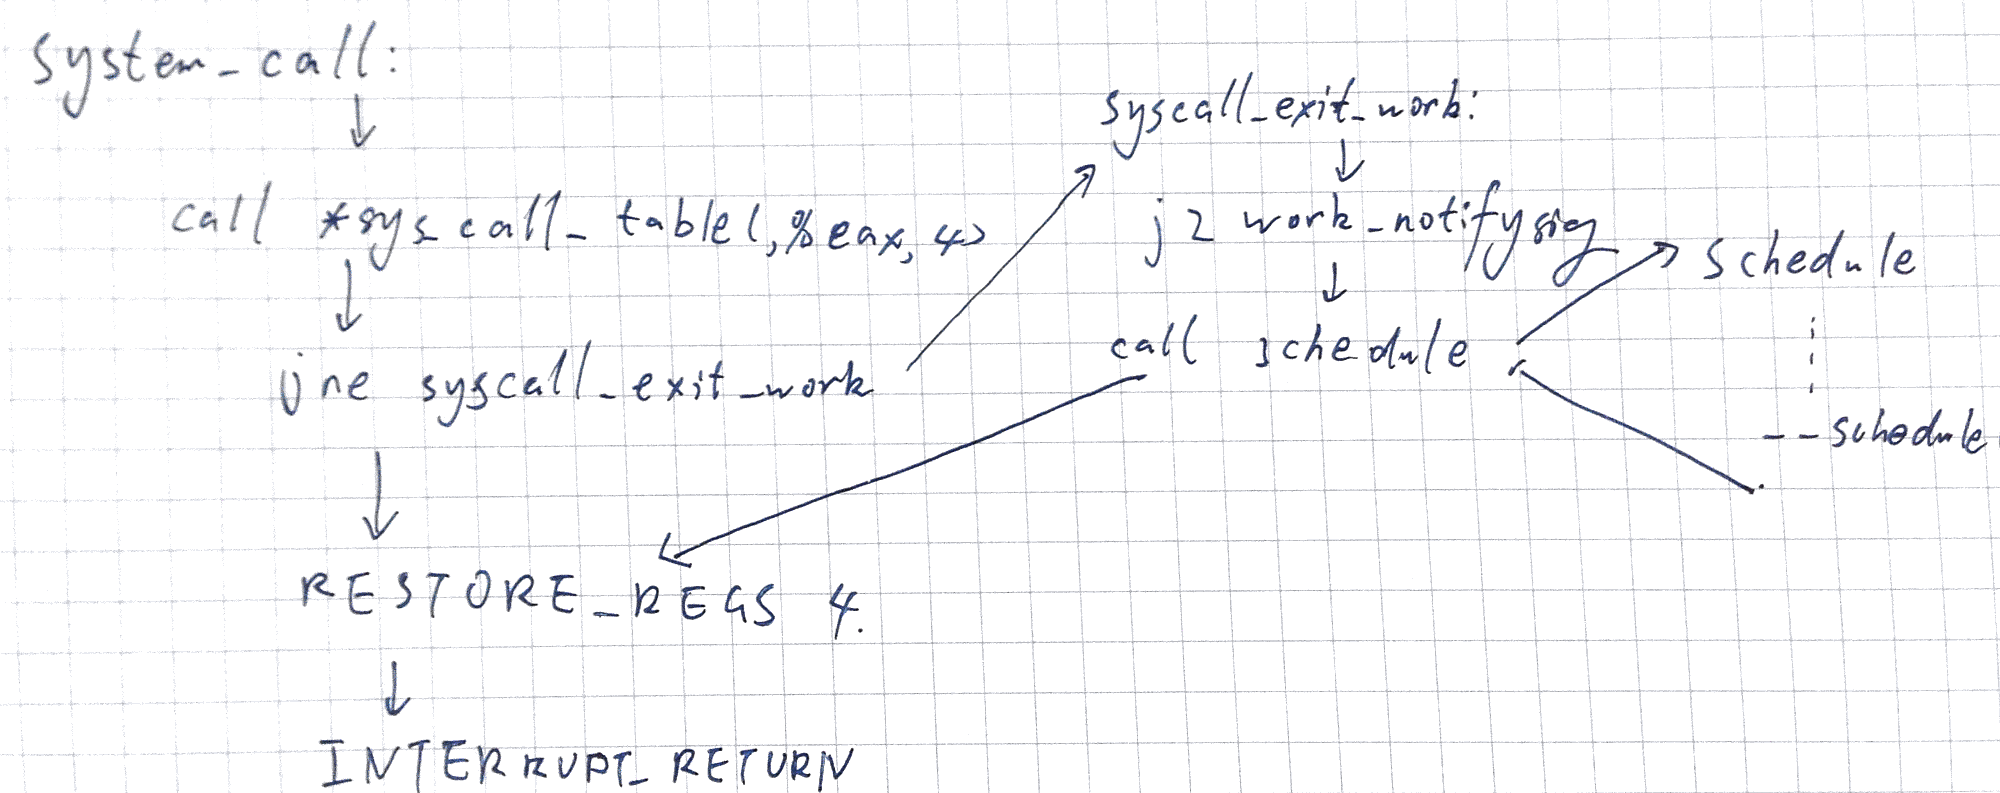 system_call:
call *sys_call_table(,%eax,4)
jne syscall_exit_work
RESTORE_REGS 4.
INTERRUPT_RETURN
syscall_exit_work:
jz work_notifysig
call schedule
schedule
--schedule